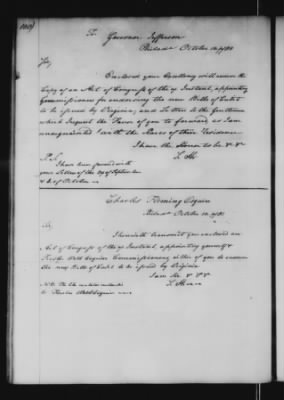 To
Governor Jefferson
Philada October 10. 1780
Sir,
Enclosed your Excellency will receive the
Copy of an Act of Congress of the 9th Instant, appointing
Commissioners for endorsing the new Bills of Credit
to be issued by Virginia; and Letters to the Gentlemen
which I request the Favor of you to forward, as I am
unacquainted with the Places of their Residence
I have the Honor to be &c &c
P.S.
I have been favored with
your Letters of the of September
& of October
Charles Fleming Esquire
Philada October 10. 1780
Sir,
I herewith transmit you enclosed an
Act of Congress of the 9th Instant, appointing yourself &
Webb Esquire Commissioners, either of you to endorse
the new Bills of Credit to be issued by Virginia
I am &c &c &c
Note The like mutatis mutandis
to Webb Esquire